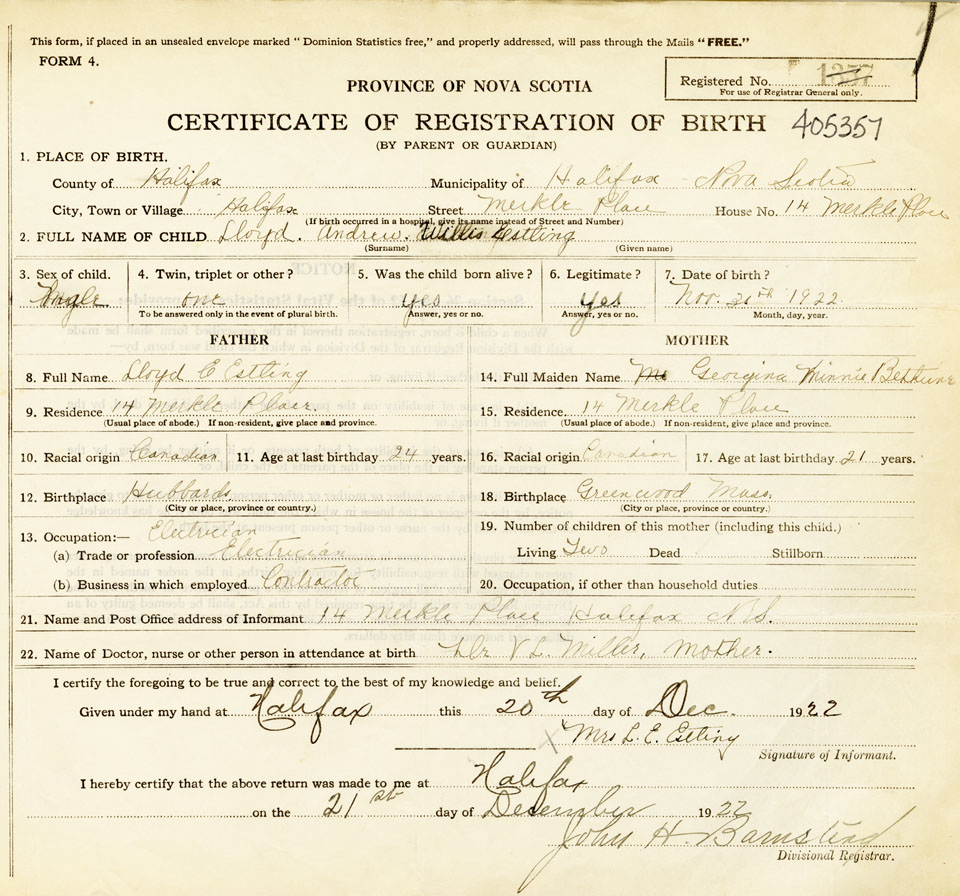 This form, if placed in an unsealed envelope marked "Dominion Statistics free," and properly addressed, will pass through the Mails "FREE."
FORM 4.
Registered No. 1357
For use of Registrar General only.
PROVINCE OF NOVA SCOTIA
CERTIFICATE OF REGISTRATION OF BIRTH 405357
(BY PARENT OR GUARDIAN)
1. PLACE OF BIRTH.
County of Halifax Municipality of Halifax Nova Scotia
City, Town or Village Halifax Street Merkle Place House No. 14 Merkle Place
(If birth occurred in a hospital, give its name instead of Street and Number)
2. FULL NAME OF CHILD Lloyd. Andrew. Willis Estling
(Surname) (Given name)
3. Sex of child. 4. Twin, triplet or other? 5. Was the child born alive? 6. Legitimate? 7. Date of birth?
Single one Yes Yes Nov. 1922
To be answered only in the event of plural birth. Answer, yes or no. Answer, yes or no. Month, day, year.
FATHER MOTHER
8. Full Name Lloyd E Estling 14. Full Maiden Name Georgina Minnie
9. Residence 14 Merkle Place. 15. Residence 14 Merkle Place
(Usual place of abode.) If non-resident, give place and province. (Usual place of abode.) If non-resident, give place and province.
10. Racial origin Canadian 11. Age at last birthday 24 years. 16. Racial origin Canadian 17. Age at last birthday 21 years.
12. Birthplace Hubbards 18. Birthplace Greenwood Mass.
(City or place, province or country.) (City or place, province or country.)
13. Occupation:— Electrician 19. Number of children of this mother (including this child.)
(a) Trade or profession Electrician Living Two Dead Stillborn
(b) Business in which employed Contractor 20. Occupation, if other than household duties
21. Name and Post Office address of Informant 14 Merkle Place Halifax N.S.
22. Name of Doctor, nurse or other person in attendance at birth Dr V L. Miller, Mother.
I certify the foregoing to be true and correct to the best of my knowledge and belief.
Given under my hand at Halifax this 20th day of Dec. 1922
X Mrs L. E. Estling
Signature of Informant.
I hereby certify that the above return was made to me at Halifax
on the 21st day of December 1922
John H. Barnstead
Divisional Registrar.